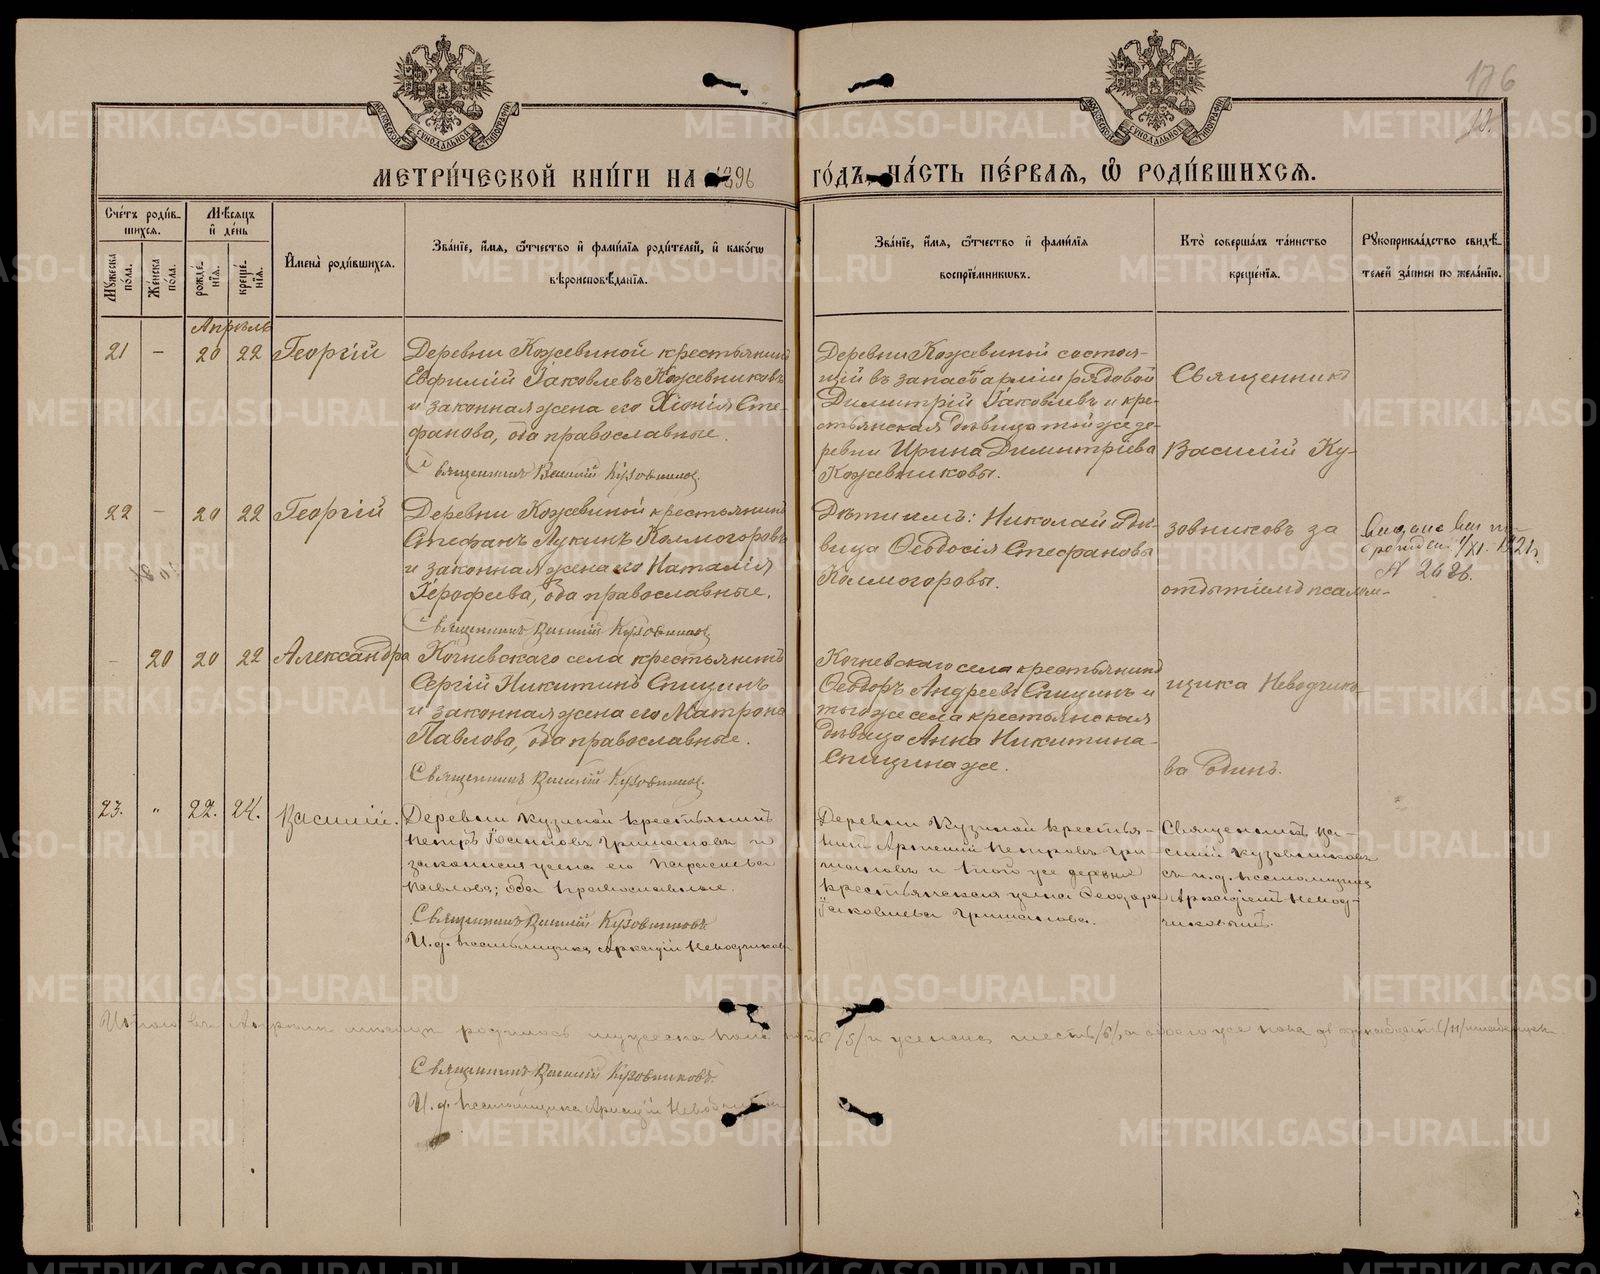 186
18.
МЕТРИ́ЧЕСКОЙ КНИ́ГИ НА 1896 ГО́ДЪ, ЧА́СТЬ ПЕ́РВАЯ, Ѿ РОДИ́ВШИХСѦ.
Сче́тъ роди́в-
шихсѧ.
Мѣ́сѧцъ
и де́нь
Мꙋ́жеска по́ла.
Же́нска по́ла.
рожде́-
нїѧ.
креще́-
нїѧ.
И҆мена̀ роди́вшихсѧ.
Зва́нїе, и҆́мѧ, ѻ҆́тчество и҆ фами́лїѧ роди́телей, и҆ како́гѡ
вѣроисповѣ́данїѧ.
Зва́нїе, и҆́мѧ, ѻ҆́тчество и҆ фами́лїѧ
воспрїе́мникѡвъ.
Кто̀ соверша́лъ та́инство
креще́нїѧ.
Рꙋкоприкла́дство свидѣ́-
телей за́писи по жела́нїю.
Апрѣль
21 - 20 22 Георгій
Деревни Кожевиной крестьянинъ
Евфимій Іаковлевъ Кожевниковъ
и законная жена его Хіонія Сте-
фанова, оба православные.
Священникъ Василій Кузовников
Деревни Кожевиной состоя-
щій въ запасѣ арміи рядовой
Димитрій Іаковлевъ и кре-
стьянская дѣвица той же де-
ревни Ирина Димитріева
Кожевниковы.
Священникъ
Василій Ку-
22 - 20 22 Георгій
Деревни Кожевиной крестьянинъ
Стефанъ Лукинъ Колмогоровъ
и законная жена его Наталія
Ерофеева, оба православные.
Священникъ Василій Кузовников
Николай и дѣ-
вица Ѳеодосія Стефановы
Колмогоровы.
зовниковъ за
отбытіемъ псалом-
1921
№ 2626.
- 20 20 22 Александра
Кочневскаго села крестьянинъ
Сергій Никитинъ Спицинъ
и законная жена его Матрона
Павлова, оба православные.
Священникъ Василій Кузовников
Кочневскаго села крестьянинъ
Ѳеодоръ Андреевъ Спицинъ и
того же села крестьянская
дѣвица Анна Никитина
Спицина же.
щика Неводчико-
ва одинъ.
23. " 22. 24. Василій.
Деревни Кузиной крестьянинъ
Петръ Іоанновъ и
законная жена его Параскева
Павлова; оба православные.
Священникъ Василій Кузовниковъ
И. д. псаломщика Аркадій Неводчиковъ
Деревни Кузиной крестья-
нинъ Петровъ
и той же деревни
крестьянская жена Ѳеодора
Іаковлева
Священникъ Ва-
силій Кузовниковъ
съ и. д. псаломщика
Аркадіемъ Невод-
чиковымъ.
Итого въ Апрѣлѣ мѣсяцѣ родилось мужеска пола пять /5/ и женска шесть /6/, а обоего же пола одиннадцать /11/ младенцевъ.
Священникъ Василій Кузовниковъ.
И. д. псаломщика Аркадій Неводчиков
METRIKI.GASO-URAL.RU